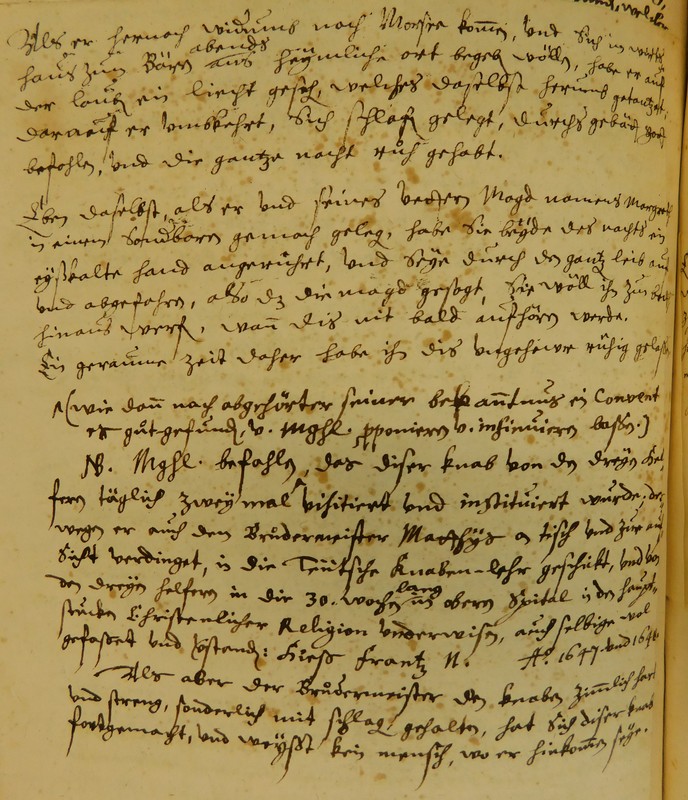 welche
Als er hernach widrumb nach Morsee kommen, und sich im wirts
abends
haus zum Bären ans heymliche ort begeb wöllen, habe er auf
der laub ein liecht geseh, welches daselbst herumb getantzet,
darauf er umbkehrt, sich schlaf gelegt, durchs gebätt Gott
befohlen, und die gantze nacht ruh gehabt.
Eben daselbst, als er und seines vettern Magd namens Margreth
in einem sonderbaren gemach geleg, habe sie beyde des nachts ein
eyßkalte hand angerühret, und seye durch den gantz leib auf
und abgefahren, also dz die magd gesagt, sie wöll ihn zum beth
hinaus werf, wann dis nit bald aufhören werde.
Ein geraume zeit daher habe ihn dis ungeheure rühig gelassen
(wie dann nach abgehörter seiner bekanntnus ein Convent
es gut gefund, v. Mghl. proponieren v. insinuieren lassen.)
NB. Mghl. befohlen, das diser knab von den dreyen Hel-
feren täglich zweymal visitiert und instituiert wurde, des-
wegen er auch dem Brudermeister Matthys an tisch und zur auf-
sicht verdinget, in die Teütsche Knaben-lehr geschikt, und von
den dreyen helfern in die 30. wochen lang im obern Spital in den haupt-
stucken Christenlicher Religion underwisen, auch selbige wol
gefasset und verstand: Hiess Frantz N. Aº. 1647. und 1648.
Als aber der Brudermeister den knaben zimmlich hart
und streng, sonderlich mit schlag gehalten, hat sich diser knab
fortgemacht, und weysst kein mensch, wo er hinkommen seye.